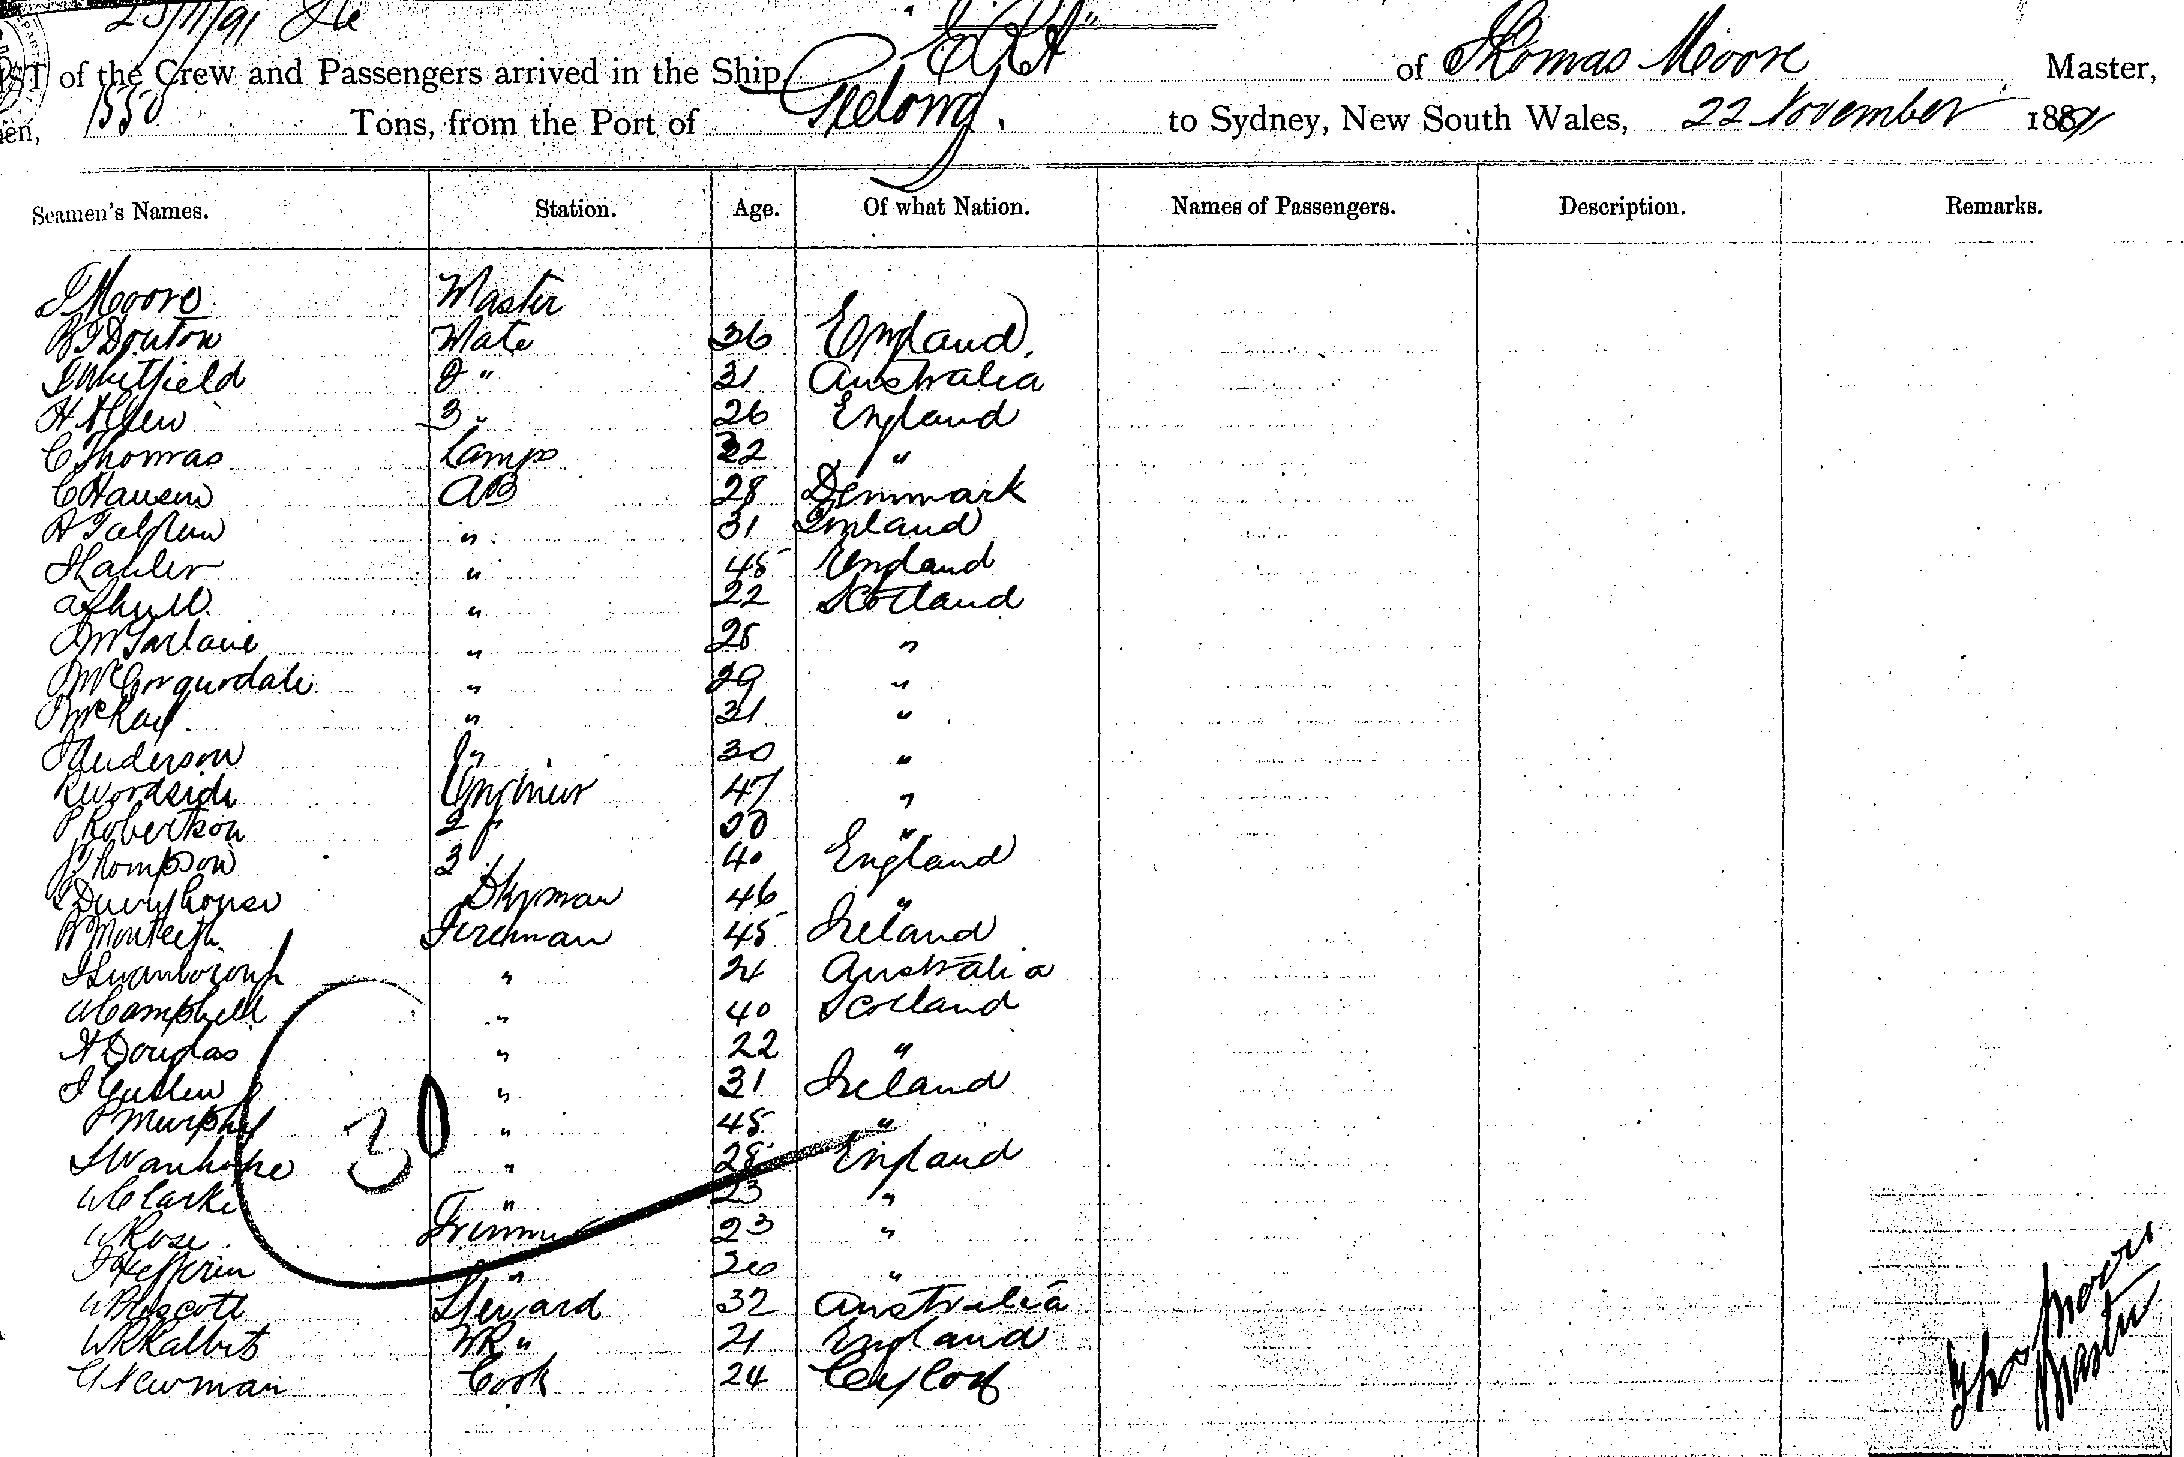 23/11/91
"ERA"
LIST of the Crew and Passengers arrived in the Ship of Thomas Moore Master,
1550 Tons, from the Port of Geelong. to Sydney, New South Wales, 22 November 1891
Seamen's Names. Station. Age. Of what Nation. Names of Passengers. Description. Remarks.
T Moore Master
Douton Mate 36 England.
Whitfield 2 " 31 Australia
H Allen 3 " 26 England
C Thomas Lamps 22 "
C Hansen AB 28 Denmark
" 31 Finland
" 45 England
" 22 Scotland
J McFarlane " 25 "
McCorquodale " 29 "
McKay " 31 "
J Anderson " 30 "
R Woodside Engineer 47 "
P Robertson 2 " 30 "
J Thompson 3 " 40 England
Dkyman 46 "
Monteith Fireman 45 Ireland
J Swanborough " 21 Australia
A Campbell " 40 Scotland
A Douglas " 22 "
" 31 Ireland
P Murphy " 45 "
30
" 28 England
W Clarke " 23 "
W Rose Trimmer 23 "
J Hefferin " 26 "
W Prescott Steward 32 Australia
W R " 21 England
G Newman Cook 24 Ceylon
Thos Moore
Master